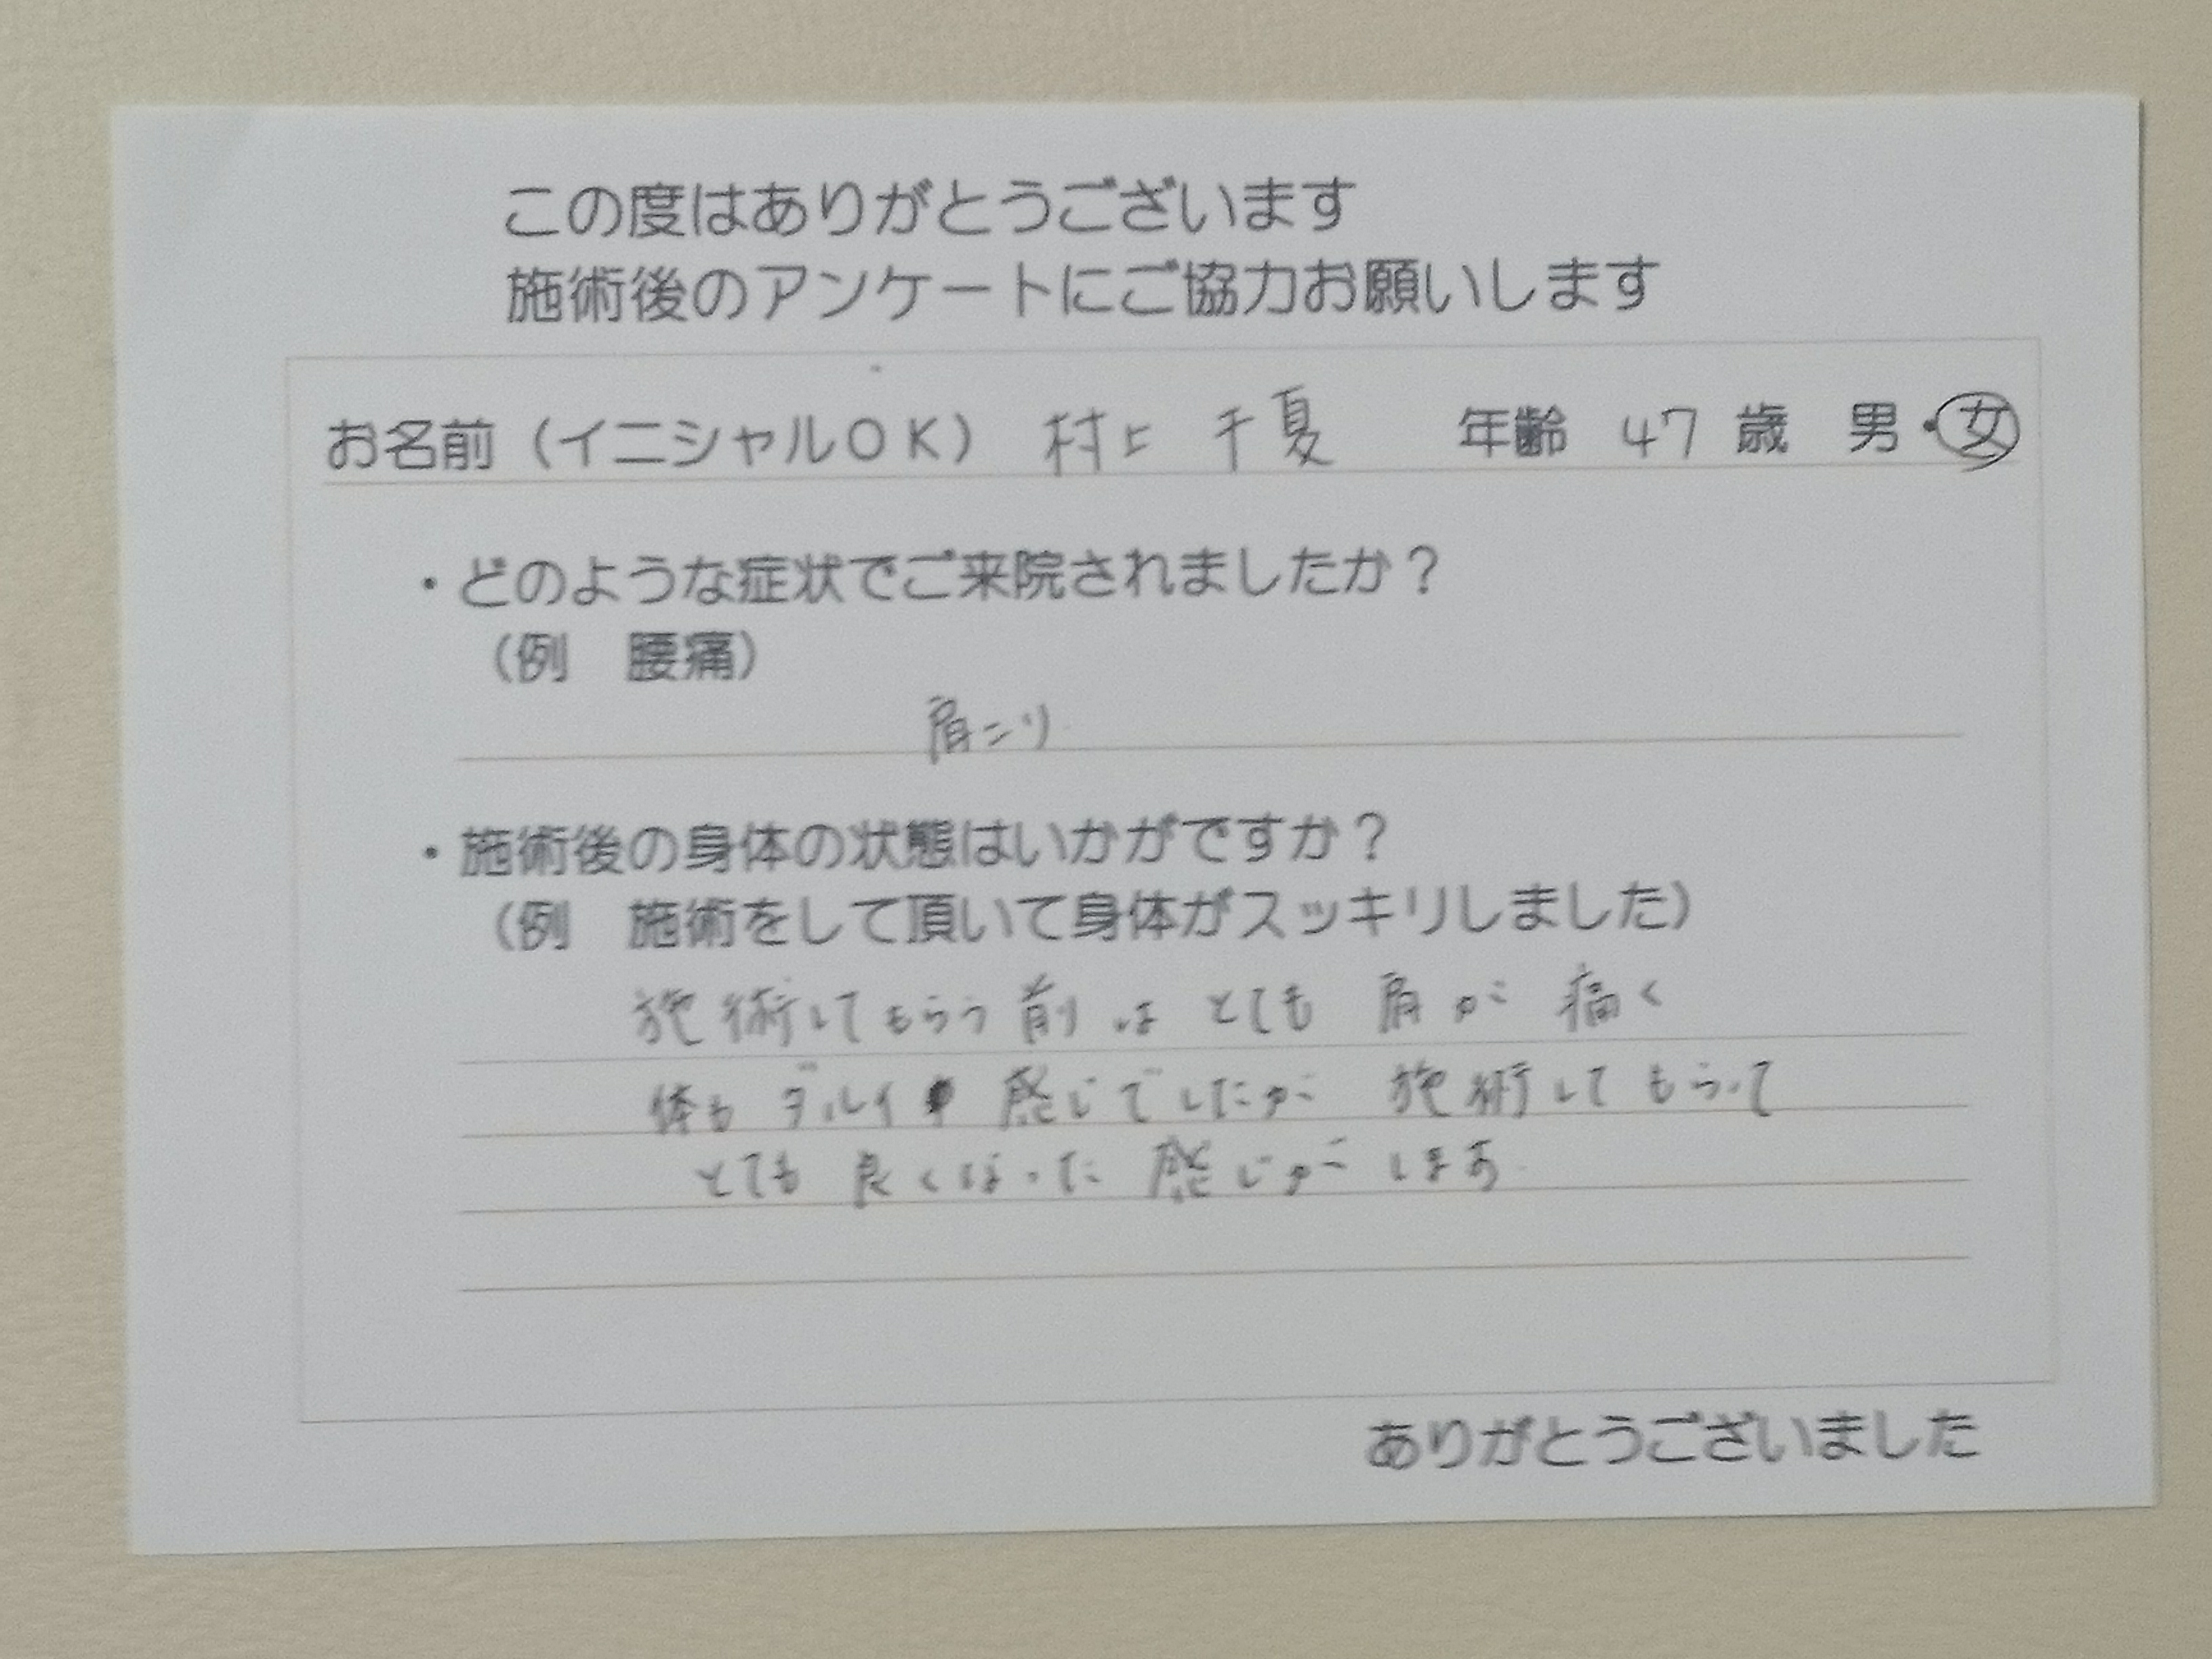 この度はありがとうございます
施術後のアンケートにご協力お願いします
お名前（イニシャルOK） 村上 千夏 年齢 47 歳 男・女
・どのような症状でご来院されましたか？
（例 腰痛）
肩こり
・施術後の身体の状態はいかがですか？
（例 施術をして頂いて身体がスッキリしました）
施術してもらう前はとても肩が痛く
体もダルイ感じでしたが施術してもらって
とても良くなった感じがします
ありがとうございました